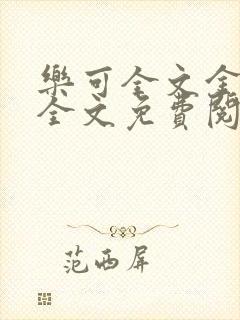 樂可全文全
全文免費閱
范西屏